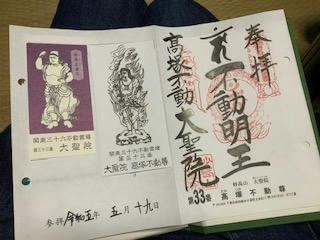 奉拝
不動明王
高塚不動 大聖院
第33番
妙高山 大聖院
高塚不動尊
関東三十六不動霊場
第三十三番
大聖院
関東三十六不動霊場
第三十三番
大聖院 高塚不動尊
参拝 令和五年 五月 十九日